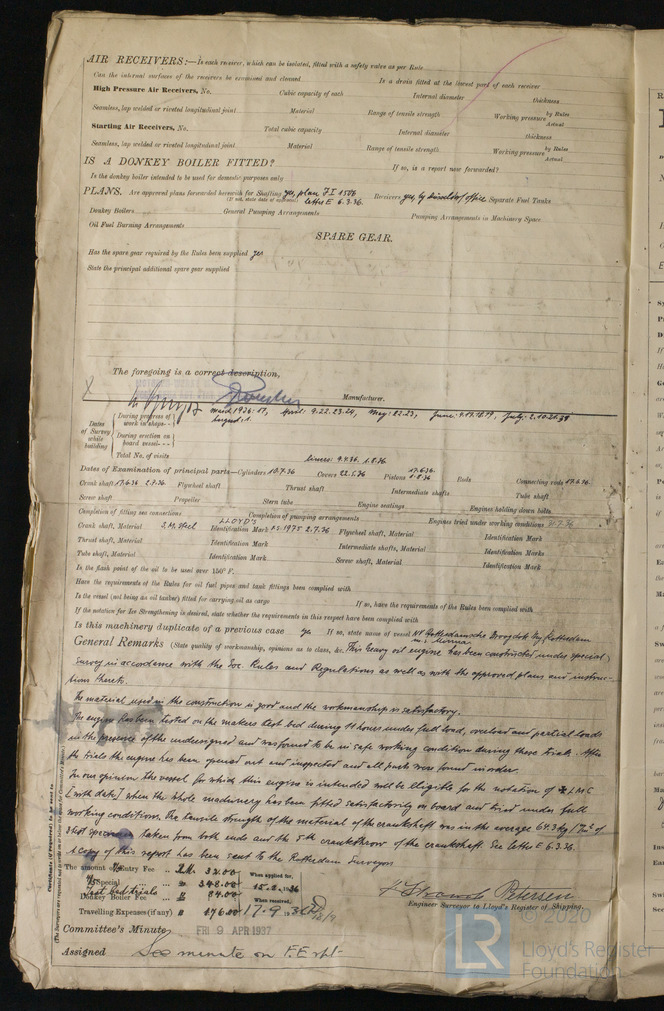 AIR RECEIVERS:—Is each receiver, which can be isolated, fitted with a safety valve as per Rule
Can the internal surfaces of the receivers be examined and cleaned Is a drain fitted at the lowest part of each receiver
High Pressure Air Receivers, No. Cubic capacity of each Internal diameter thickness
Seamless, lap welded or riveted longitudinal joint Material Range of tensile strength Working pressure by Rules Actual
Starting Air Receivers, No. Total cubic capacity Internal diameter thickness
Seamless, lap welded or riveted longitudinal joint Material Range of tensile strength Working pressure by Rules Actual
IS A DONKEY BOILER FITTED? If so, is a report now forwarded?
Is the donkey boiler intended to be used for domestic purposes only
PLANS. Are approved plans forwarded herewith for Shafting yes, plan FI 1506 Receivers yes, by Düsseldorf office Separate Fuel Tanks
(If not, state date of approval) letter E 6.3.36.
Donkey Boilers General Pumping Arrangements Pumping Arrangements in Machinery Space
Oil Fuel Burning Arrangements
SPARE GEAR.
Has the spare gear required by the Rules been supplied yes
State the principal additional spare gear supplied
The foregoing is a correct description,
Manufacturer.
Dates of Survey while building
During progress of work in shops - - March 1936: 17, April: 9.22.23.24, May: 22.23, June: 4.17.18.19, July: 2.10.21.31
August: 1.
During erection on board vessel - - -
Total No. of visits
Liners: 9.4.36. 1.8.36
Dates of Examination of principal parts—Cylinders 10.7.36 Covers 22.5.36 Pistons 17.6.36 1.8.36 Rods Connecting rods 17.6.36
Crank shaft 17.6.36 2.7.36. Flywheel shaft Thrust shaft Intermediate shafts Tube shaft
Screw shaft Propeller Stern tube Engine seatings Engines holding down bolts
Completion of fitting sea connections Completion of pumping arrangements Engines tried under working conditions 31.7.36
Crank shaft, Material S.M. Steel Identification Mark LLOYD'S 1975 2.7.36 Flywheel shaft, Material Identification Mark
Thrust shaft, Material Identification Mark Intermediate shafts, Material Identification Marks
Tube shaft, Material Identification Mark Screw shaft, Material Identification Mark
Is the flash point of the oil to be used over 150° F.
Have the requirements of the Rules for oil fuel pipes and tank fittings been complied with
Is the vessel (not being an oil tanker) fitted for carrying oil as cargo If so, have the requirements of the Rules been complied with
If the notation for Ice Strengthening is desired, state whether the requirements in this respect have been complied with
Is this machinery duplicate of a previous case yes If so, state name of vessel NV Rotterdamsche Droogdok My, Rotterdam
General Remarks (State quality of workmanship, opinions as to class, &c. This heavy oil engine has been constructed under special
survey in accordance with the Soc. Rules and Regulations as well as with the approved plans and instruc-
tions thereto.
The material used in the construction is good and the workmanship is satisfactory.
The engine has been tested on the makers test bed during 11 hours under full load, overload and partial loads
in the presence of the undersigned and was found to be in safe working condition during these trials. After
the trials the engine has been opened out and inspected and all parts were found in order.
In our opinion the vessel for which this engine is intended will be eligible for the notation of ✠ LMC
[with date] when the whole machinery has been fitted satisfactorily on board and tried under full
working conditions. The tensile strength of the material of the crankshaft was in the average 64.3 kg/mm² of
test specimens taken from both ends and the 5th crankthrow of the crankshaft. See letter E 6.3.36.
A copy of this report has been sent to the Rotterdam Surveyors
The amount of Entry Fee .. RM. 32.00 When applied for,
Special .. 348.00 15.8.1936
Test bed trials
Donkey Boiler Fee .. 84.00 When received,
Travelling Expenses (if any) 76.00 17.9.1936
Petersen
Engineer Surveyor to Lloyd's Register of Shipping.
Committee's Minute FRI 9 APR 1937
Assigned See minute on F.E. rpt.
Certificate (if required) to be sent to
(The Surveyors are requested not to write on or below the space for Committee's Minute.)
LR
© 2020
Lloyd's Register
Foundation